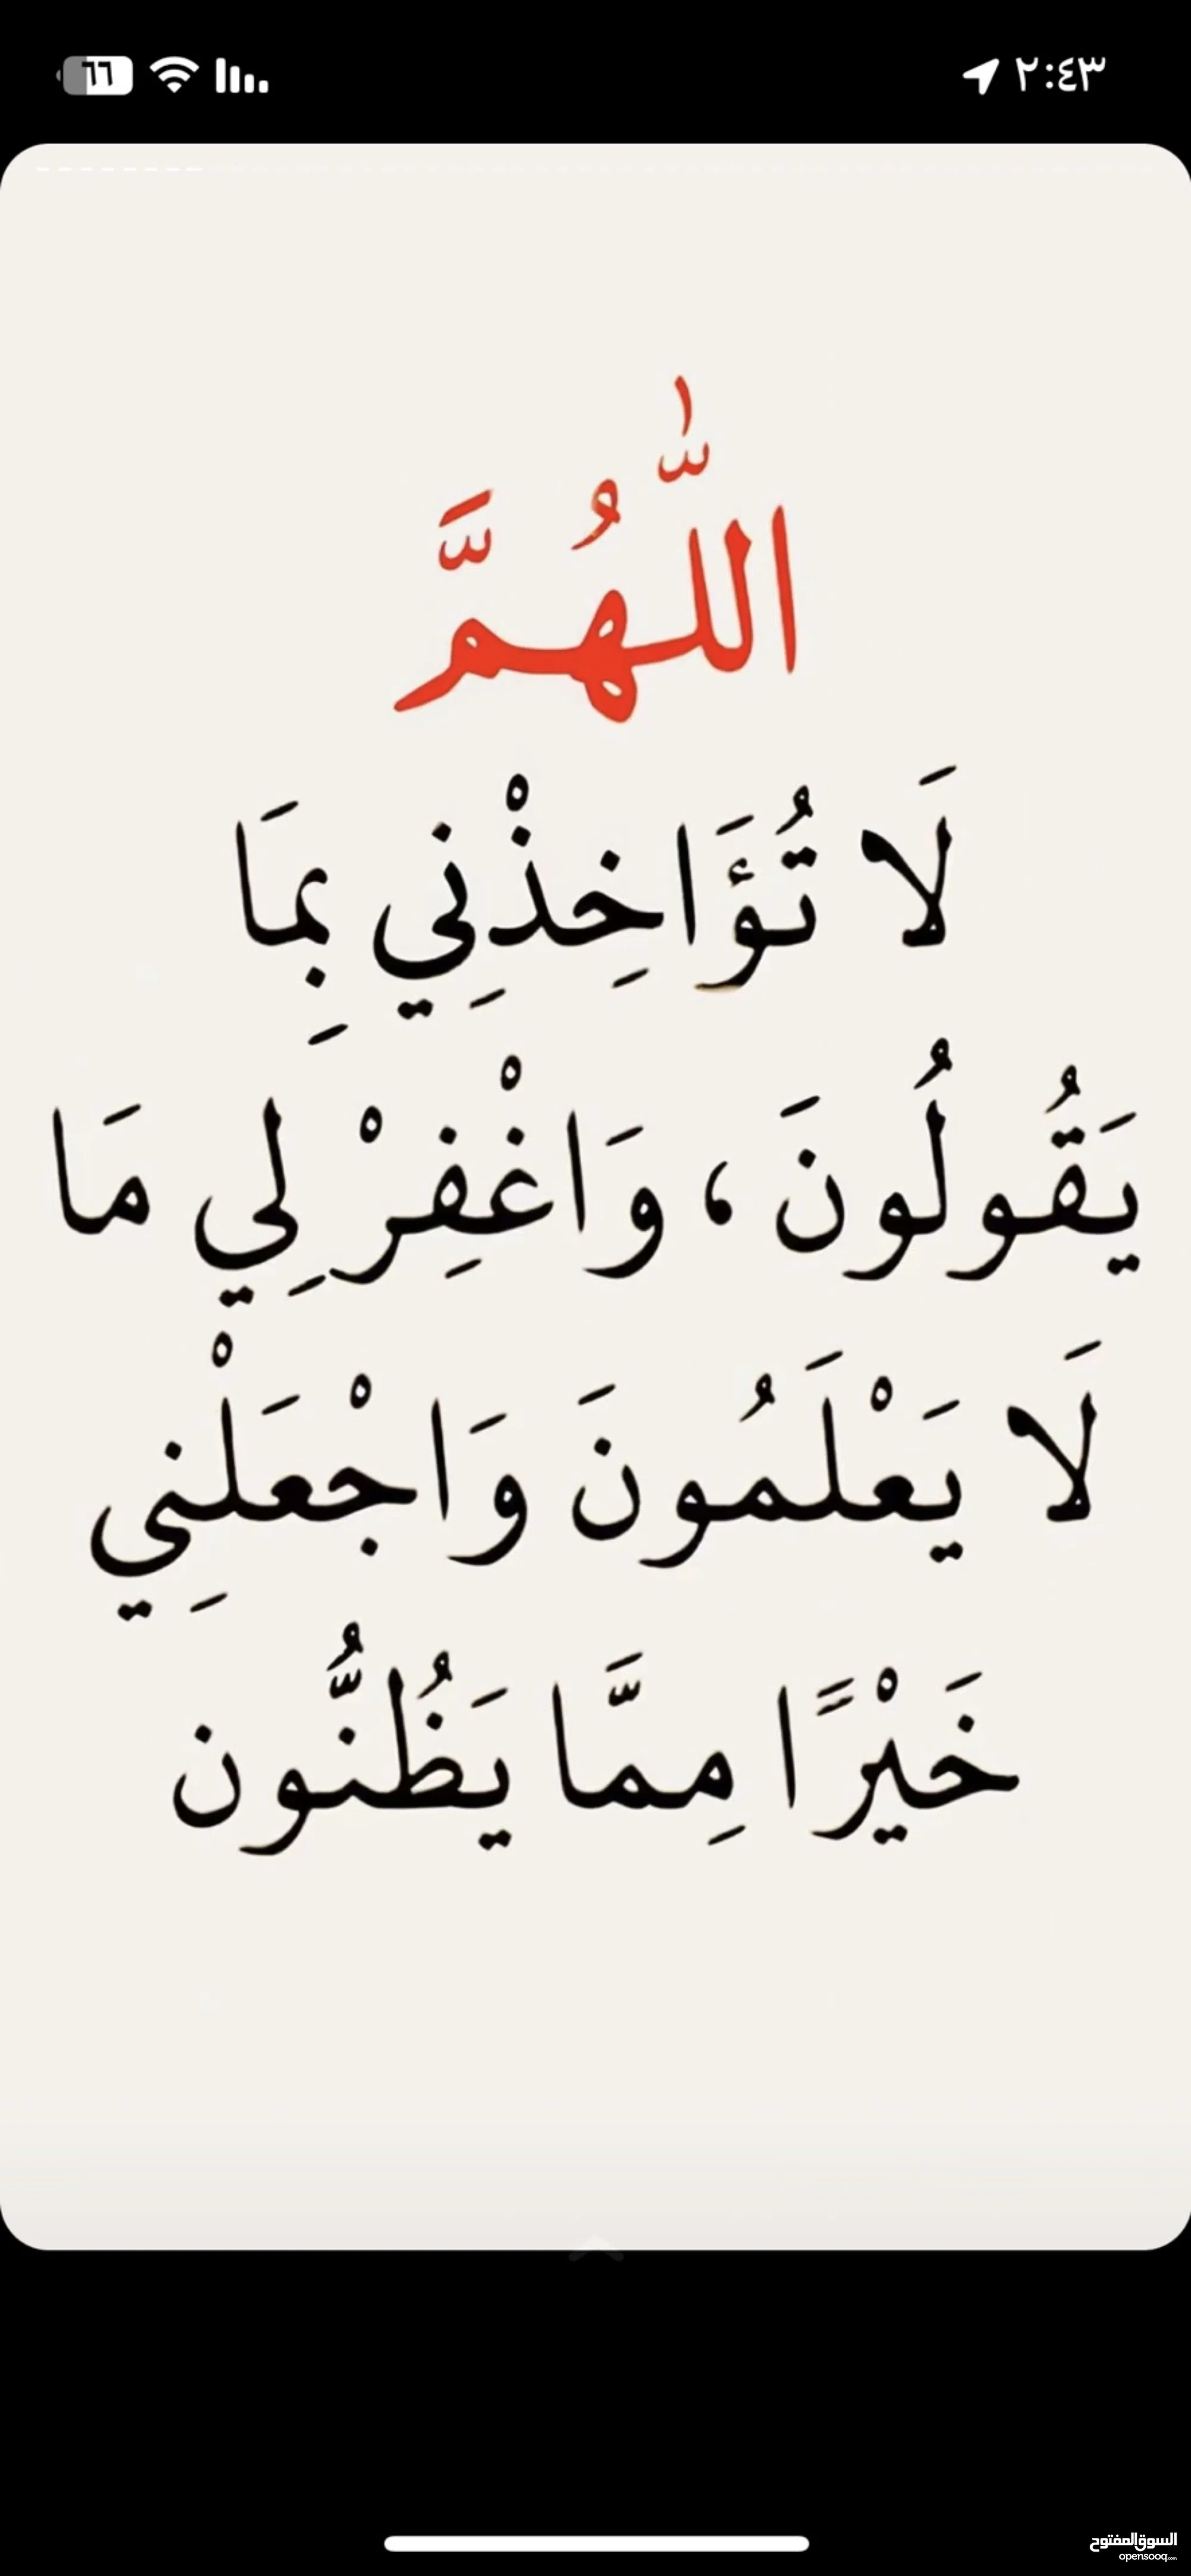 ٢:٤٣
٦٦
اللّٰهُمَّ
لَا تُؤَاخِذْنِي بِمَا
يَقُولُونَ، وَاغْفِرْ لِي مَا
لَا يَعْلَمُونَ وَاجْعَلْنِي
خَيْرًا مِمَّا يَظُنُّون
السوق المفتوح
opensooq.com